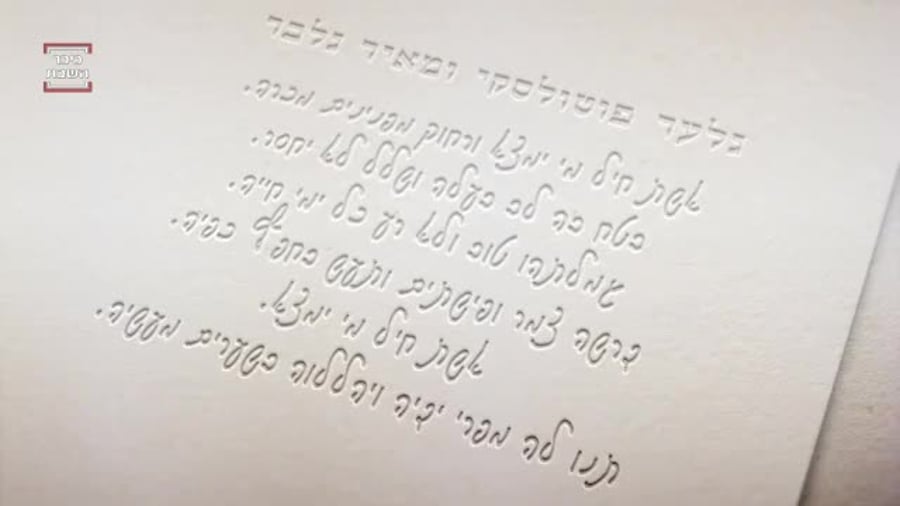 כיכר
השבת
גלעד פוטולסקי ומאיר גלבר
אשת חיל מי ימצא ורחוק מפנינים מכרה.
בטח בה לב בעלה ושלל לא יחסר.
גמלתהו טוב ולא רע כל ימי חייה.
דרשה צמר ופישתים ותעש בחפץ כפיה.
אשת חיל מי ימצא.
תנו לה מפרי ידיה ויהללוה בשערים מעשיה.